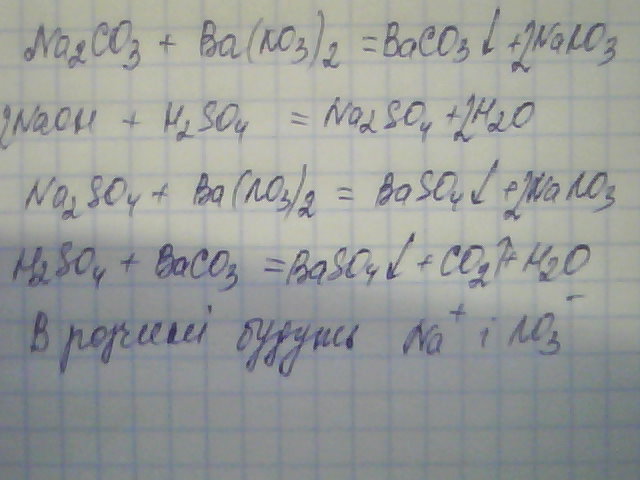 Na₂CO₃ + Ba(NO₃)₂ = BaCO₃↓ + 2NaNO₃
2NaOH + H₂SO₄ = Na₂SO₄ + 2H₂O
Na₂SO₄ + Ba(NO₃)₂ = BaSO₄↓ + 2NaNO₃
H₂SO₄ + BaCO₃ = BaSO₄↓ + CO₂↑ + H₂O
В розчині будуть Na⁺ і NO₃⁻